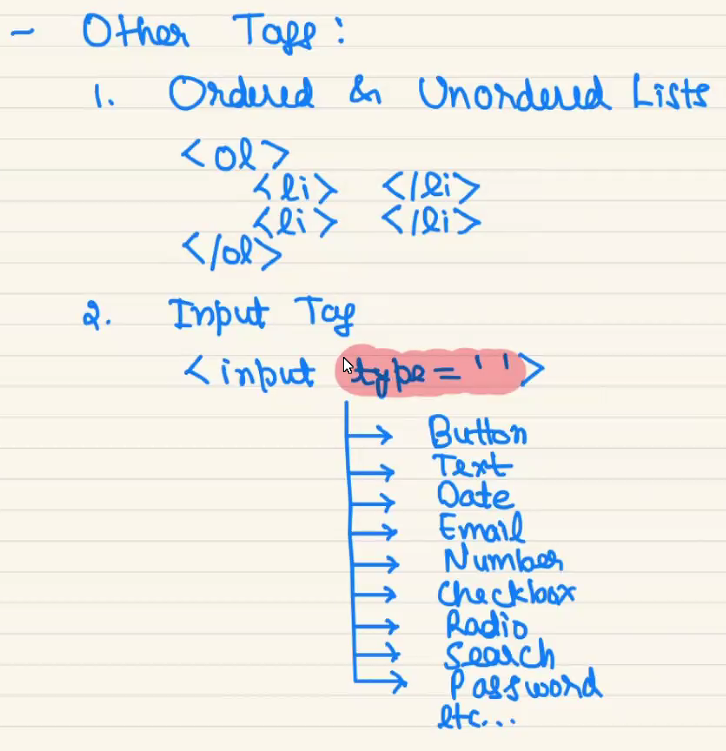 - Other Tags:
1. Ordered & Unordered Lists
<ol>
<li> </li>
<li> </li>
</ol>
2. Input Tag
<input type=''>
Button
Text
Date
Email
Number
Checkbox
Radio
Search
Password
etc...